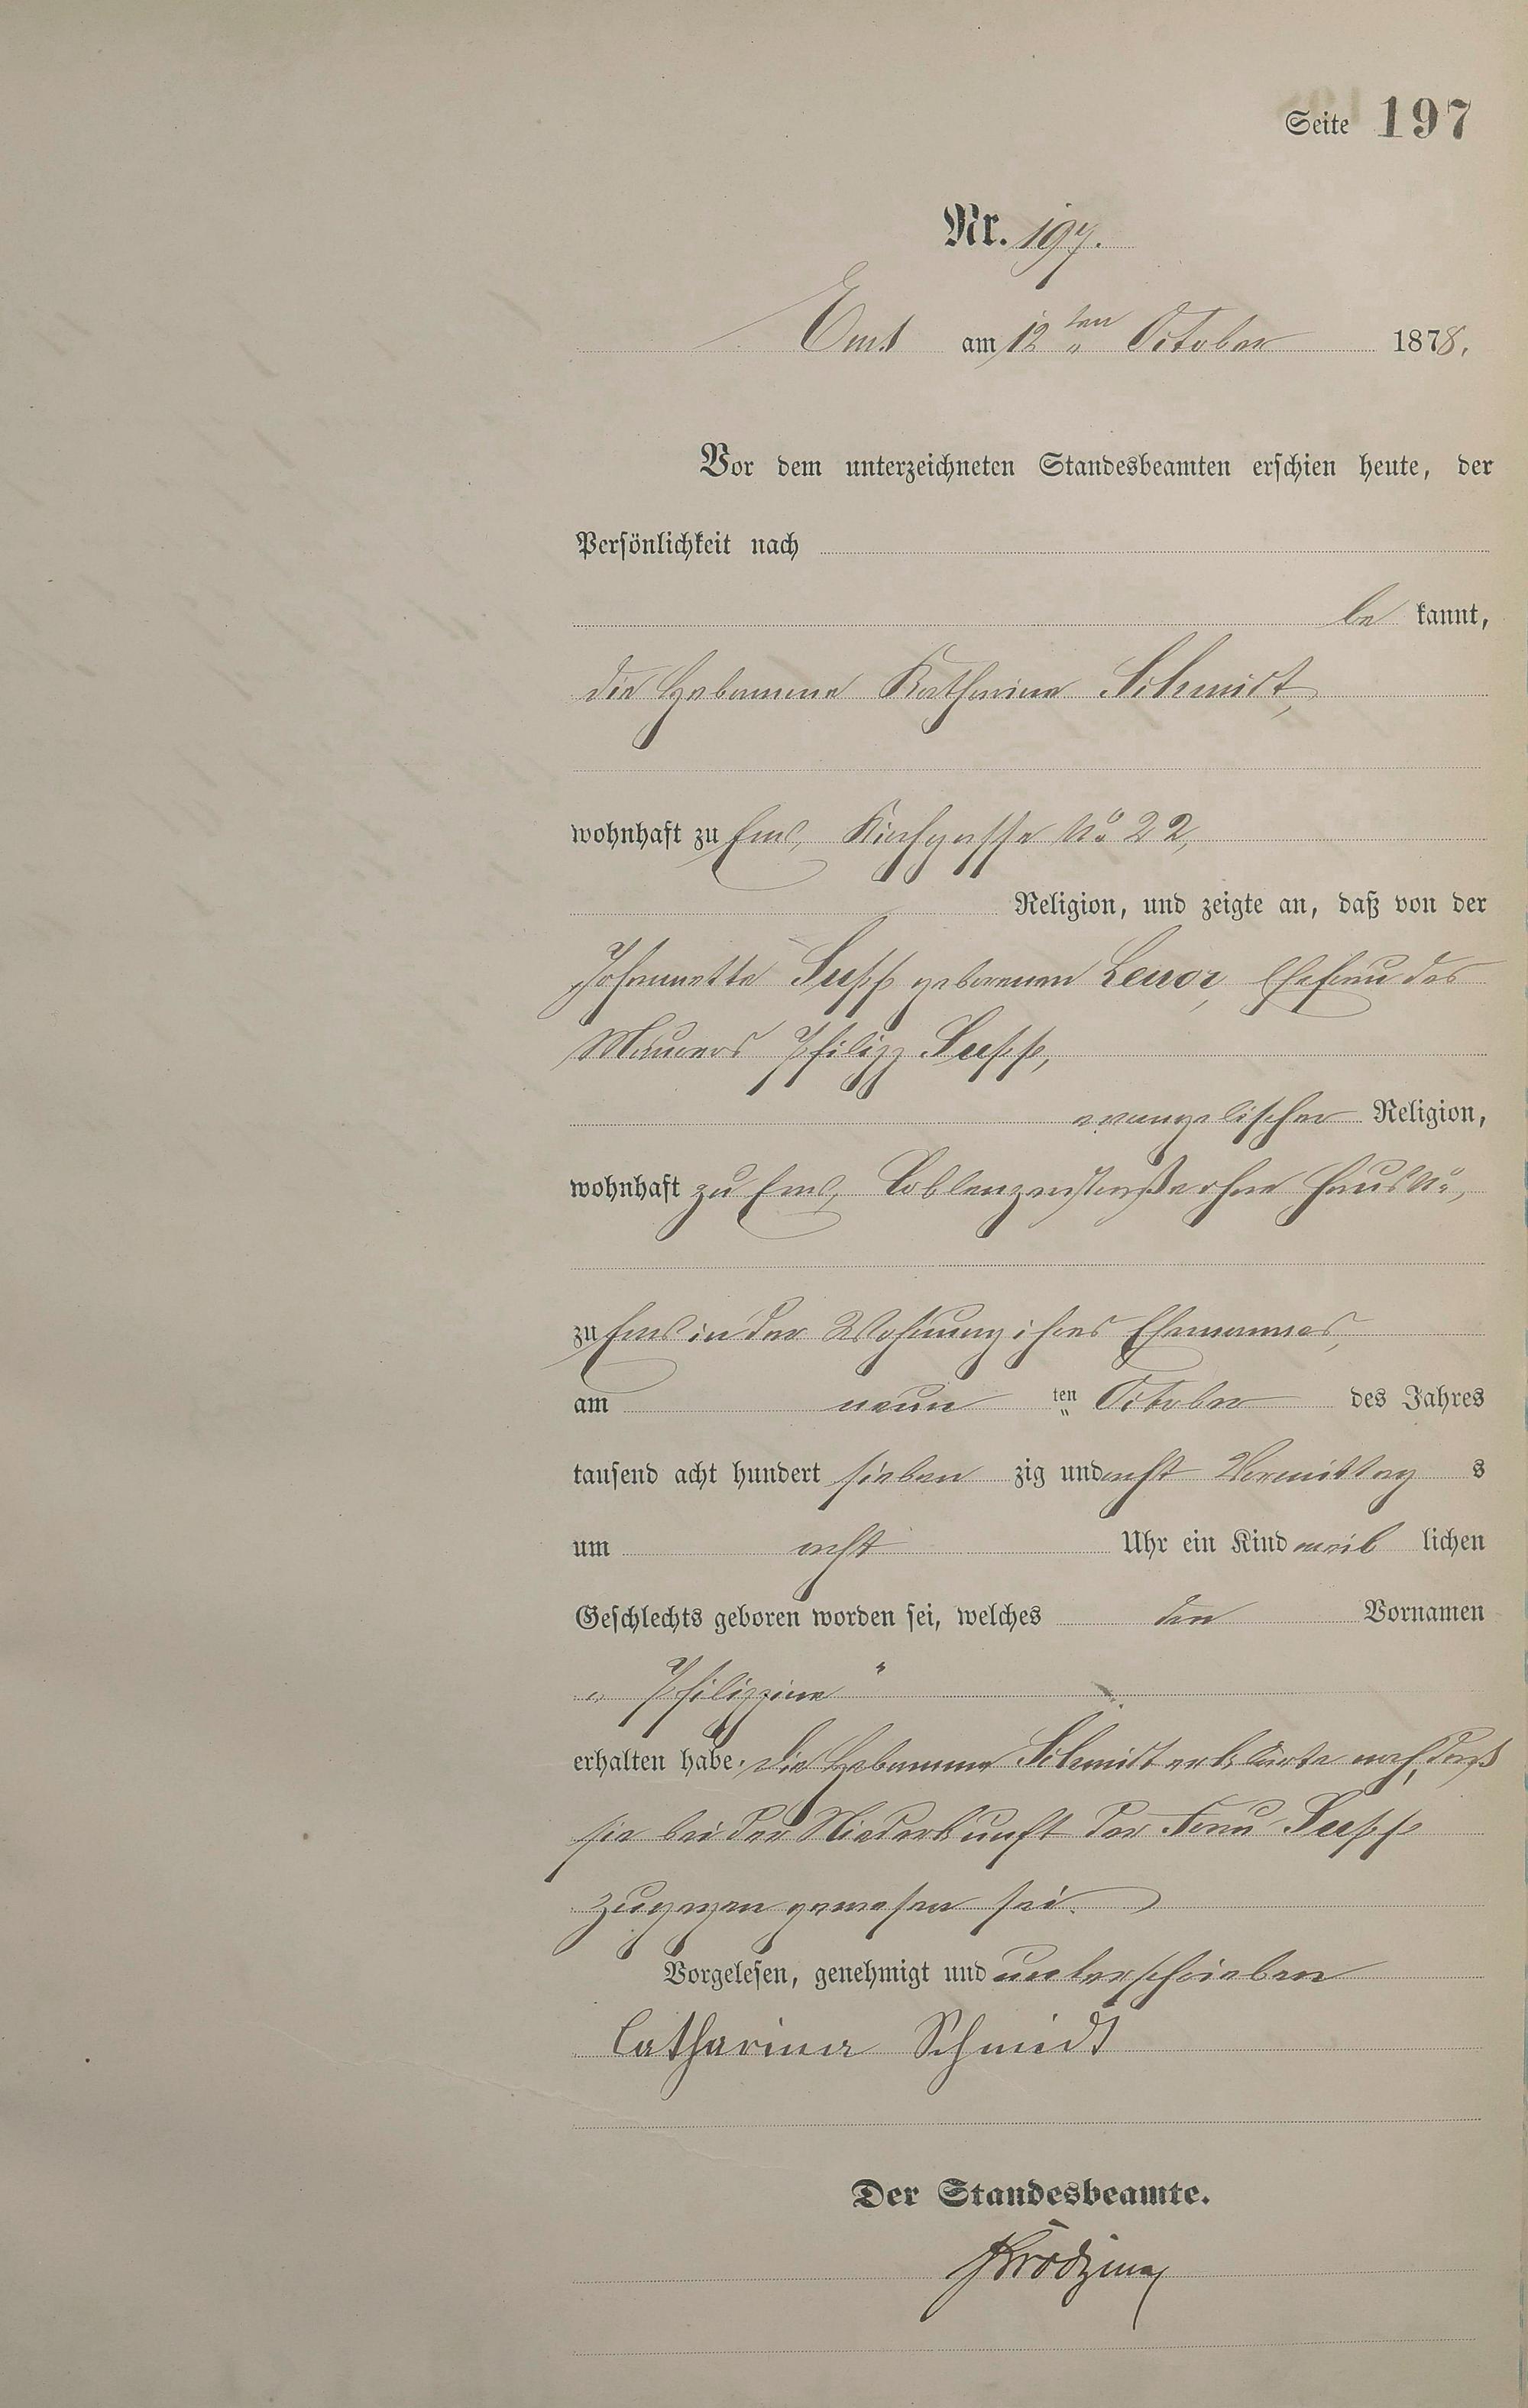 Seite 197
Nr. 197.
Ems am 12ten October 1878.
Vor dem unterzeichneten Standesbeamten erschien heute, der
Persönlichkeit nach
be kannt,
die Hebamme Katharina Schmidt,
wohnhaft zu Ems, Kirchgasse No 22,
Religion, und zeigte an, daß von der
Johannette Supp geborenen Ehefrau des
Maurers Philipp Supp,
evangelischer Religion,
wohnhaft zu Ems, Coblenzerstraße ohne Haus No,
zu Ems in der Wohnung ihres Ehemannes,
am neun ten October des Jahres
tausend acht hundert sieben zig und acht Vormittag s
um acht Uhr ein Kind weib lichen
Geschlechts geboren worden sei, welches den Vornamen
„Philippine"
erhalten habe. Die Hebamme Schmidt erklärte noch, daß
sie bei der Niederkunft der Frau Supp
zugegen gewesen sei.
Vorgelesen, genehmigt und unterschrieben
Catharina Schmidt
Der Standesbeamte.